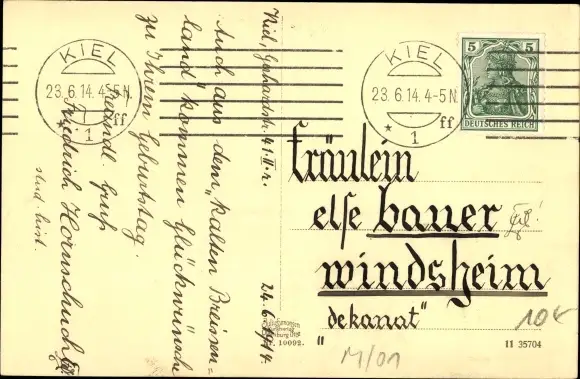 KIEL
23.6.14.4-5N.
* 1 ff
KIEL
23.6.14.4-5N.
* 1 ff
5 5
DEUTSCHES REICH
Kiel, 41.II.r. 24.6.1914.
Auch aus dem "kalten Preissen=
land" kommen Glückwünsche
zu Ihrem Geburtstag.
Freundl. Gruß
Friedrich Hornschuch
Fräulein
else bauer
windsheim
"dekanat"
10€
M/01
10092.
11 35704